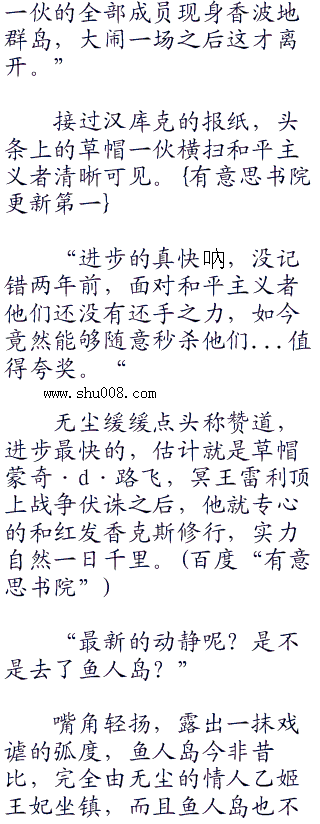 一伙的全部成员现身香波地
群岛，大闹一场之后这才离
开。”
接过汉库克的报纸，头
条上的草帽一伙横扫和平主
义者清晰可见。{有意思书院
更新第一}
“进步的真快吶，没记
错两年前，面对和平主义者
他们还没有还手之力，如今
竟然能够随意秒杀他们...值
得夸奖。“
www.shu008.com
无尘缓缓点头称赞道，
进步最快的，估计就是草帽
蒙奇·d·路飞，冥王雷利顶
上战争伏诛之后，他就专心
的和红发香克斯修行，实力
自然一日千里。(百度“有意
思书院”)
“最新的动静呢？是不
是去了鱼人岛？”
嘴角轻扬，露出一抹戏
谑的弧度，鱼人岛今非昔
比，完全由无尘的情人乙姬
王妃坐镇，而且鱼人岛也不